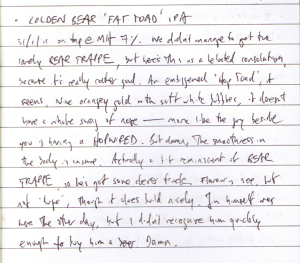 • GOLDEN BEAR 'FAT TOAD' IPA
31/1/11 on tap @ MH 7%. We didn't manage to get the
lovely BEAR TRAPPE, but here's this as a belated consolation
because it's really rather good. An enthused 'Hop Toad', it
seems. Nice orangey gold with soft white bubbles, it doesn't
have a whole swag of nose — more like the guy beside
you is having a HOPWIRED. But damn, the smoothness in
the body is insane. Actually a bit reminiscent of BEAR
TRAPPE, so he's got some clever tricks. Flavour is new, but
not 'huge', though it does build nicely. Jim himself was
here the other day, but I didn't recognise him quickly
enough to buy him a beer. Damn.